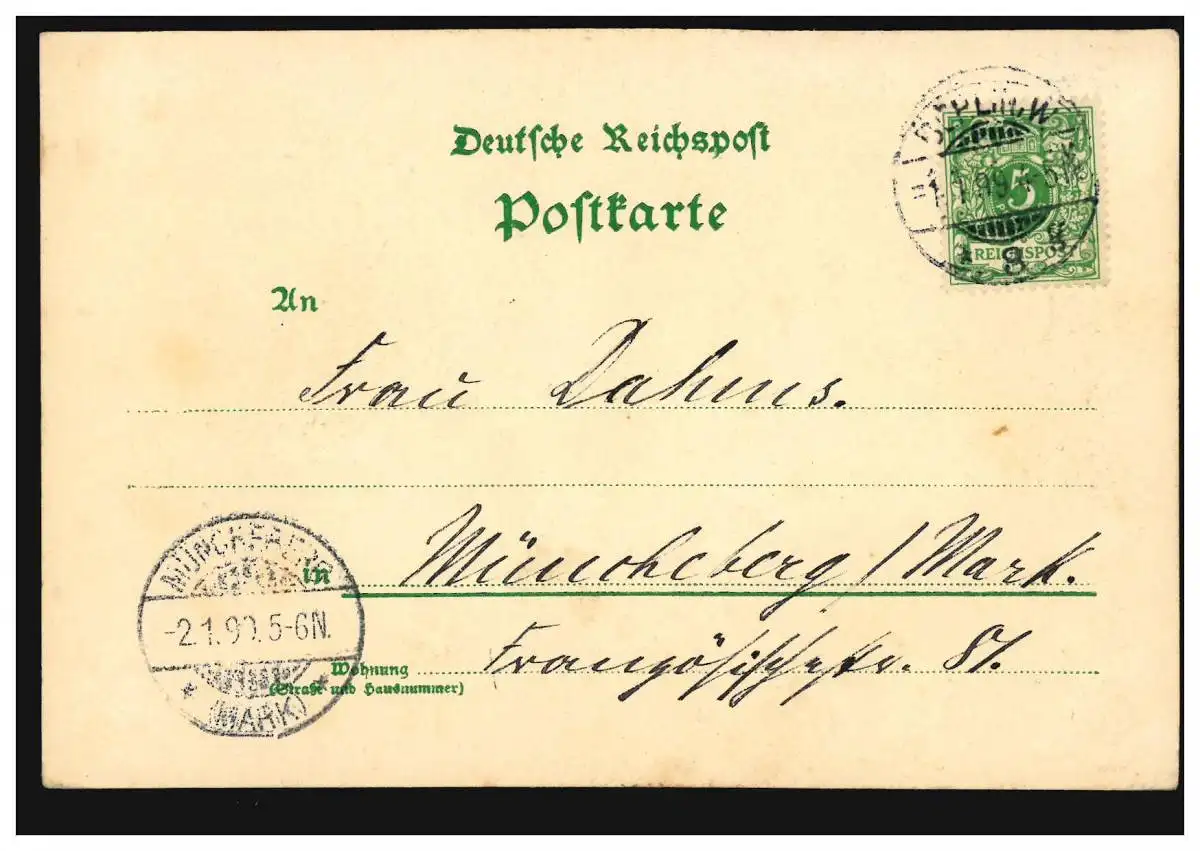 Deutsche Reichspost
Postkarte
BERLIN W
1.1.99.
8
5
REICHSPOST
An
Frau Dahms.
in Müncheberg / Mark.
Wohnung
(Straße und Hausnummer)
Französischestr. 81.
MÜNCHEBERG
-2.1.99.5-6N.
(MARK)